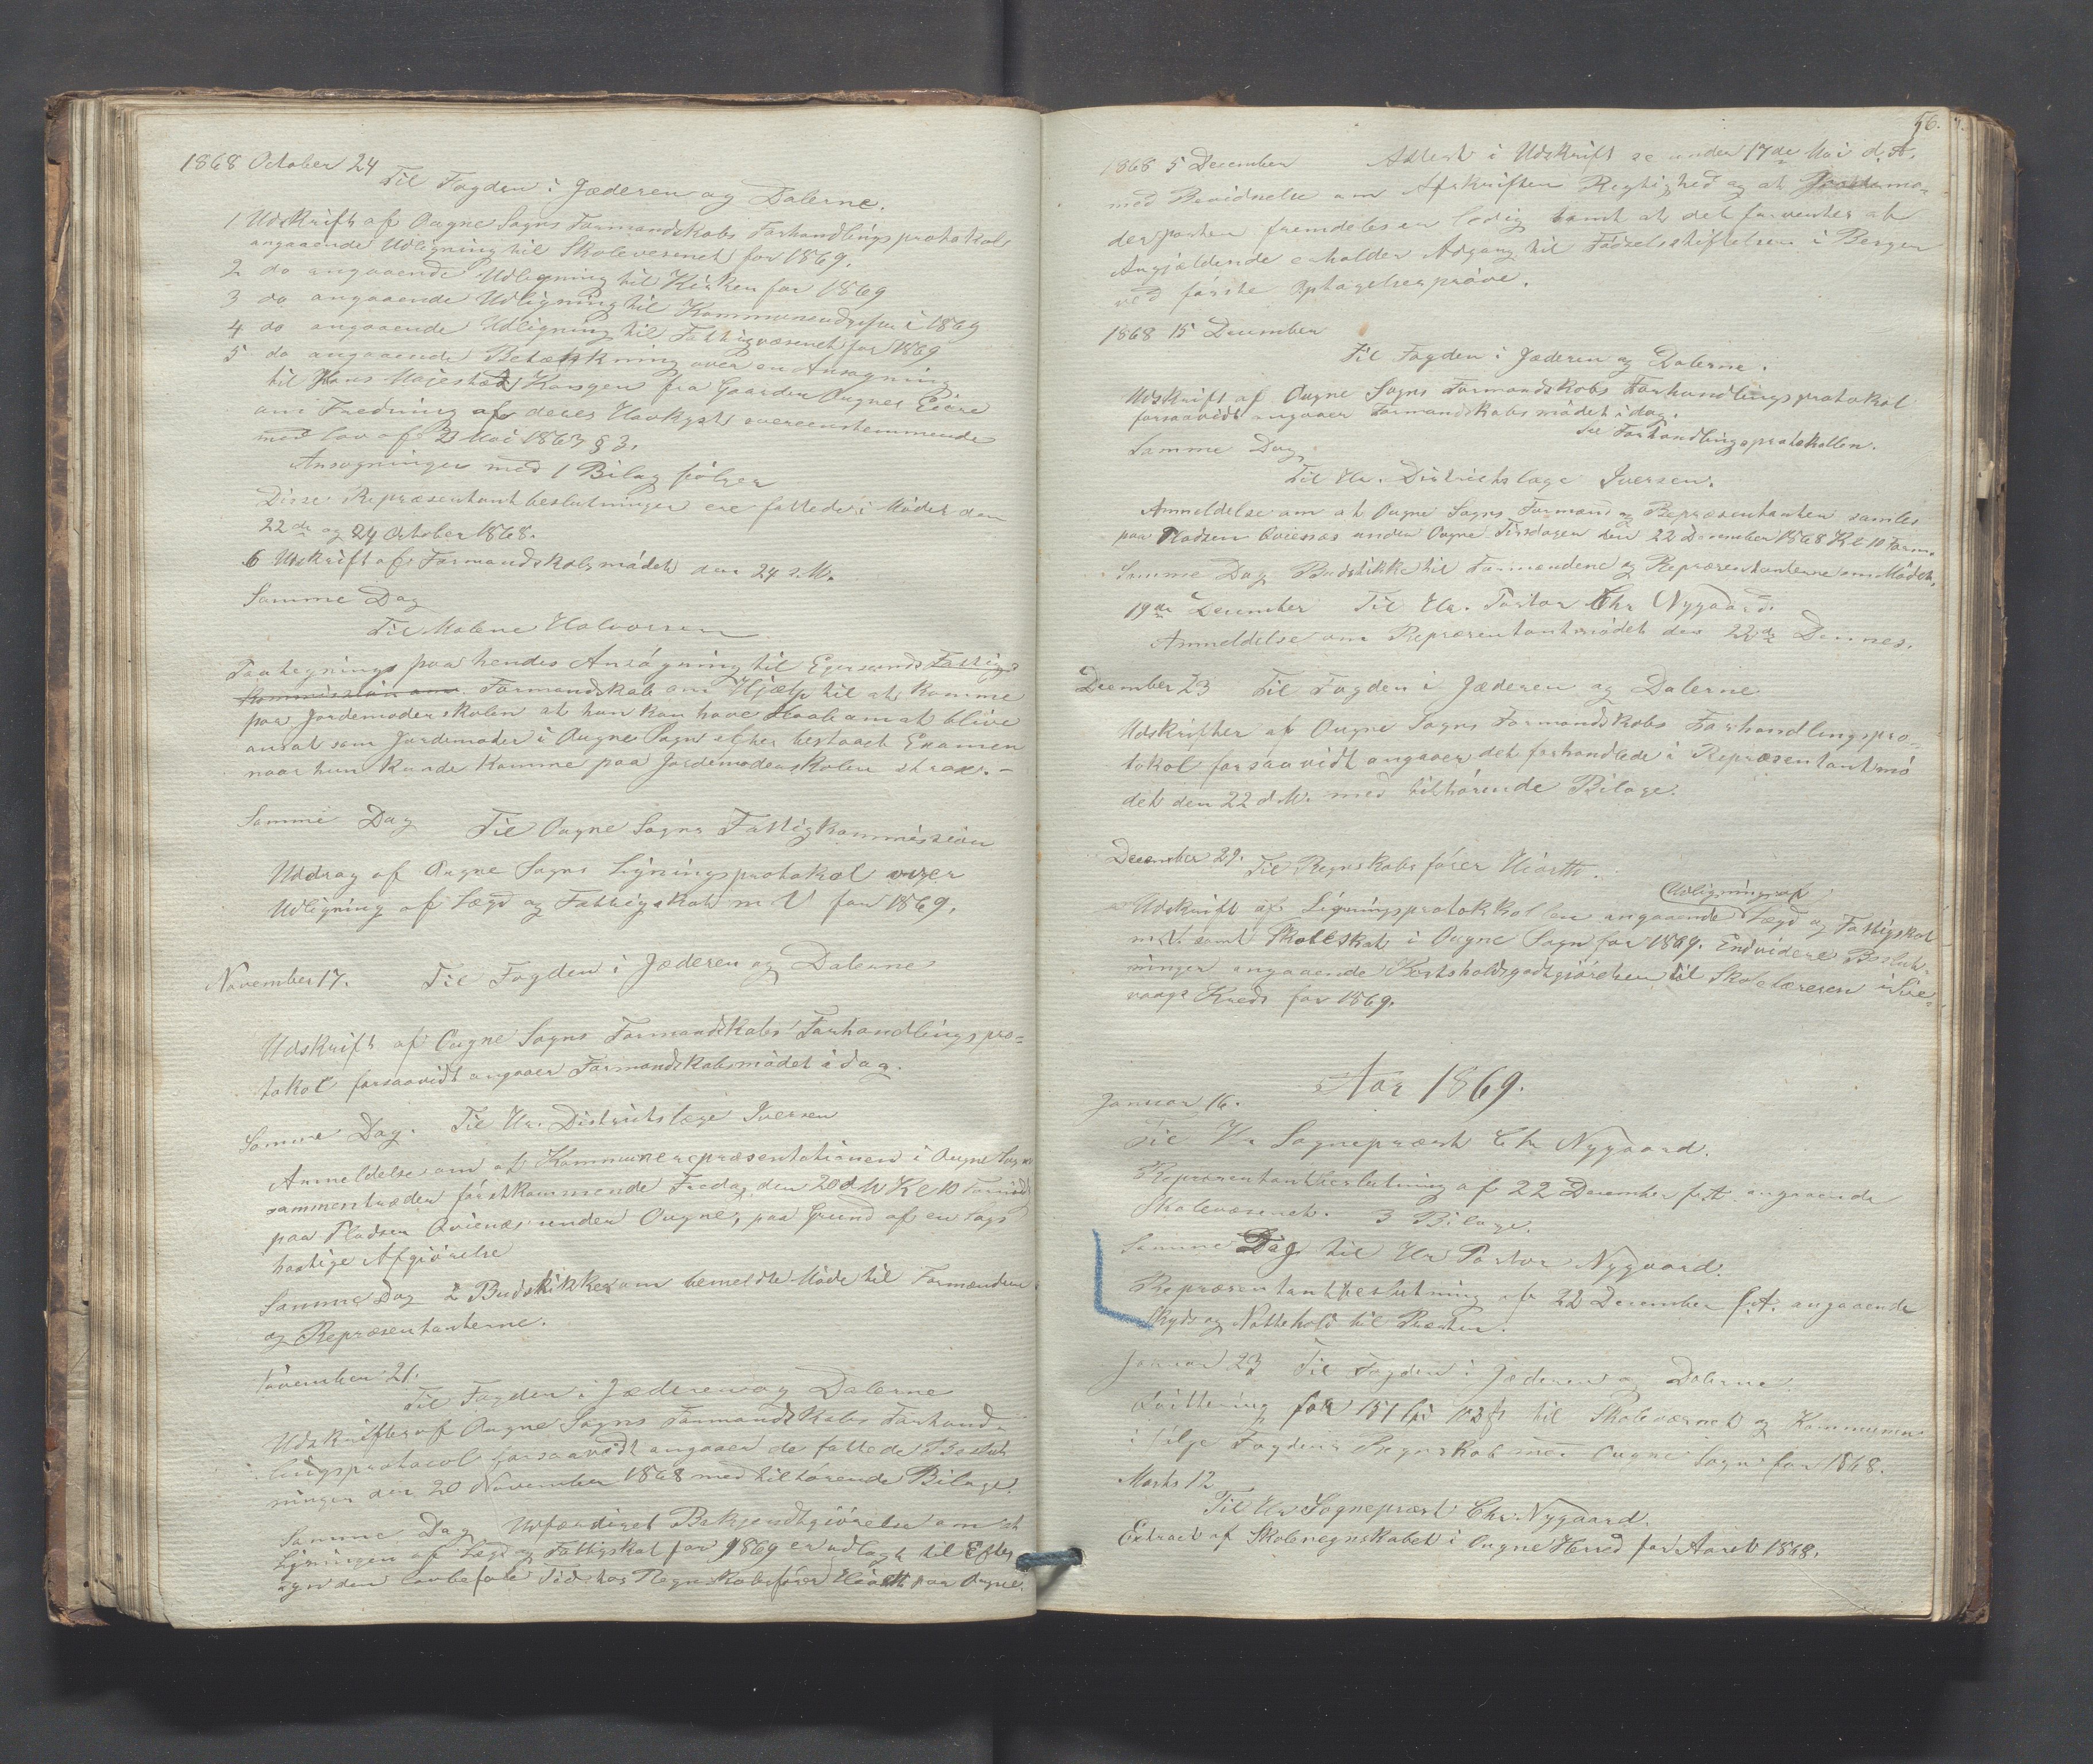 1868 October 24
Til Fogden i Jæderen og Dalerne.
1 Udskrift af Ougne Sogns Formandskabs Forhandlingsprotokol
angaaende Udligning til Skolevesenet for 1869.
2 do angaaende Udligning til Kirken for 1869
3 do angaaende Udligning til Kommuneudgifter i 1869
4 do angaaende Udligning til Fattigvæsenet for 1869
5 do angaaende Betænkning over en Ansøgning
til Hans Majestæt Kongen fra Gaarden Ougnes Eiere
om Fredning af deres Havkyst overeenstemmende
med lov af 23 Mai 1863 § 3.
Ansøgningen med 1 Bilag følger
Disse Repræsentantbeslutninger ere fattede i Mødet den
22de og 24 October 1868.
6 Udskrift af Formandskabsmødet den 24 s. M.
Samme Dag
Til Malene Halvorsen
Paategning paa hendes Ansøgning til Egersunds Fattig-
kommission om Formandskab om Hjælp til at komme
paa Jordemoderskolen at hun kan have Haab om at blive
ansat som Jordemoder i Ougne Sogn efter bestaaet Examen
naar hun kunde komme paa Jordemoderskolen strax. -
Samme Dag Til Ougne Sogns Fattigkommission
Uddrag af Ougne Sogns Ligningsprotokol over
Udligning af Lægd og Fattigskat m V for 1869.
November 17. Til Fogden i Jæderen og Dalerne
Udskrift af Ougne Sogns Formandskabs Forhandlingspro-
tokol forsaavidt angaaer Formandskabsmødet i dag.
Samme Dag. Til Hr. Districtslæge Iversen
Anmeldelse om at Kommunerepræsentationen i Ougne Sogn
sammentræder førstkommende Fredag den 20 d M Kl 10 Formid
paa Pladsen Qvienæs under Ougne, paa Grund af en Sags
hastige Afgiørelse
Samme Dag 2 Budstikker om bemeldte Møde til Formændene
og Repræsentanterne.
November 21.
Til Fogden i Jæderen og Dalerne
Udskrifter af Ougne Sogns Formandskabs Forhand-
lingsprotocol forsaavidt angaaer de fattede Beslut
ninger den 20 November 1868 med tilhørende Bilage.
Samme Dag Udfærdiget Bekjendtgiørelse om at
Ligningen af Lægd og Fattigskat for 1869 er udlagt til Efter
syn den lovbefalede Tid hos Regnskabsfører Hiorth paa Ougne.
56.
1868 5 December Attest i Udskrift se under 17de Mai d. A.
med Bevidnelse om Afskriftens Rigtighed og at Jordemo-
derposten fremdeles er ledig samt at det forventes at
Angjældende erholder Adgang til Fødselsstiftelsen i Bergen
ved første Optagelsesprøve.
1868 15 December
Til Fogden i Jæderen og Dalerne.
Udskrift af Ougne Sogns Formandskabs Forhandlingsprotokol
forsaavidt angaaer Formandskabsmødet i dag.
Se Forhandlingsprotokollen.
Samme Dag
Til Hr. Districtslæge Iversen.
Anmeldelse om at Ougne Sogns Formænd og Repræsentanter samles
paa Pladsen Qvienæs under Ougne Tirsdagen den 22 December 1868 Kl 10 Form.
Samme Dag Budstikke til Formændene og Repræsentanterne om Mødet.
19de December Til Hr. Pastor Chr Nygaard.
Anmeldelse om Repræsentantmødet den 22de Dennes.
December 23 Til Fogden i Jæderen og Dalerne
Udskrifter af Ougne Sogns Formandskabs Forhandlingspro-
tokol forsaavidt angaaer det forhandlede i Repræsentantmø
det den 22 d.M. med tilhørende Bilage.
December 29. Til Regnskabsfører Hiorth.
Udligning af
Udskrift af Ligningsprotokkollen angaaende Lægd og Fattigskat
m.V. samt Skoleskat i Ougne Sogn for 1869. Endvidere Beslut-
ninger angaaende Kostholdsgodtgjørelsen til Skolelæreren i Sire-
vaags Kreds for 1869.
Aar 1869.
Januar 16.
Til Hr Sognepræst Chr Nygaard.
Repræsentantbeslutning af 22 December f. A. angaaende
Skolevæsenet. 3 Bilage.
Samme Dag til Hr Pastor Nygaard.
Repræsentantbeslutning af 22 December f. A. angaaende
Skyds og Nattehold til Præsten.
Januar 23 Til Fogden i Jæderen og Dalerne.
Qvittering for 151 til Skolevæsnet og Kommunen
i følge Fogdens Regnskab med Ougne Sogn for 1868.
Marts 12
Til Hr Sogneprest Chr. Nygaard.
Extract af Skoleregnskabet i Ougne Herred for Aaret 1868.